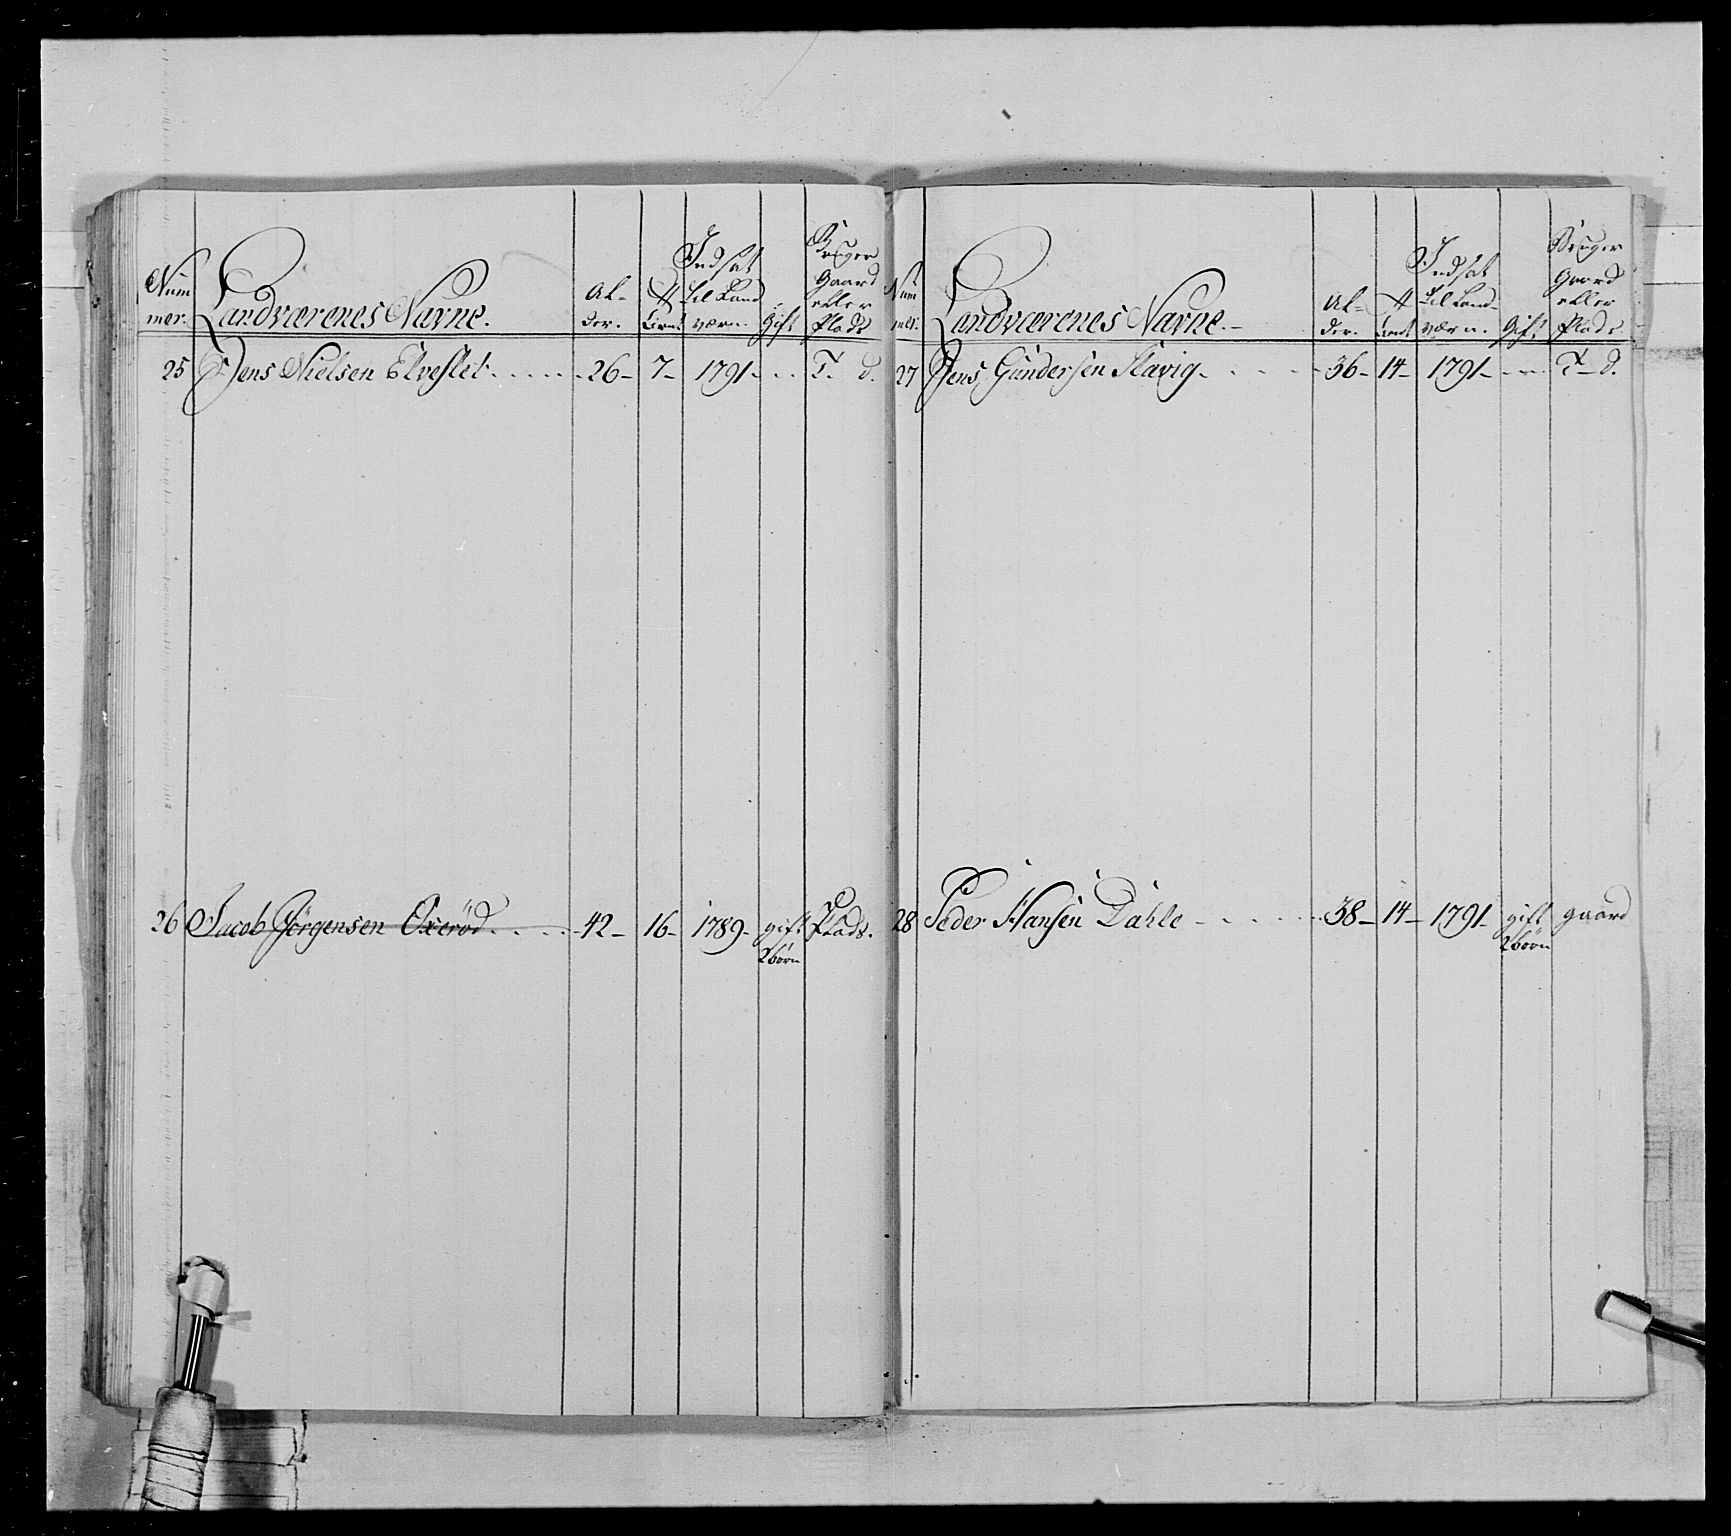 Num
mer.
Landværenes Navne.
Al-
der.
Tient
Indsat
til Land
værn.
Gift
Bruger
Gaard
eller
Plads
25 Jens Nielsen Elveslet. . . . . . 26 - 7 - 1791 - . . T. d.
26 Jacob Jørgensen Oxerød. . . . . 42 - 16 - 1789 - gift Plads.
2 børn
Num
mer.
Landværenes Navne. -
Al-
der.
Tient
Indsat
til Land-
værn.
Gift
Bruger
Gaard
eller
Plads
27 Jens Gundersen Slavig. . . . . 36 - 14 - 1791 - . . . T - d.
28 Peder Hansen Dahle - . . . . . 38 - 14 - 1791 - gift gaard
2 børn